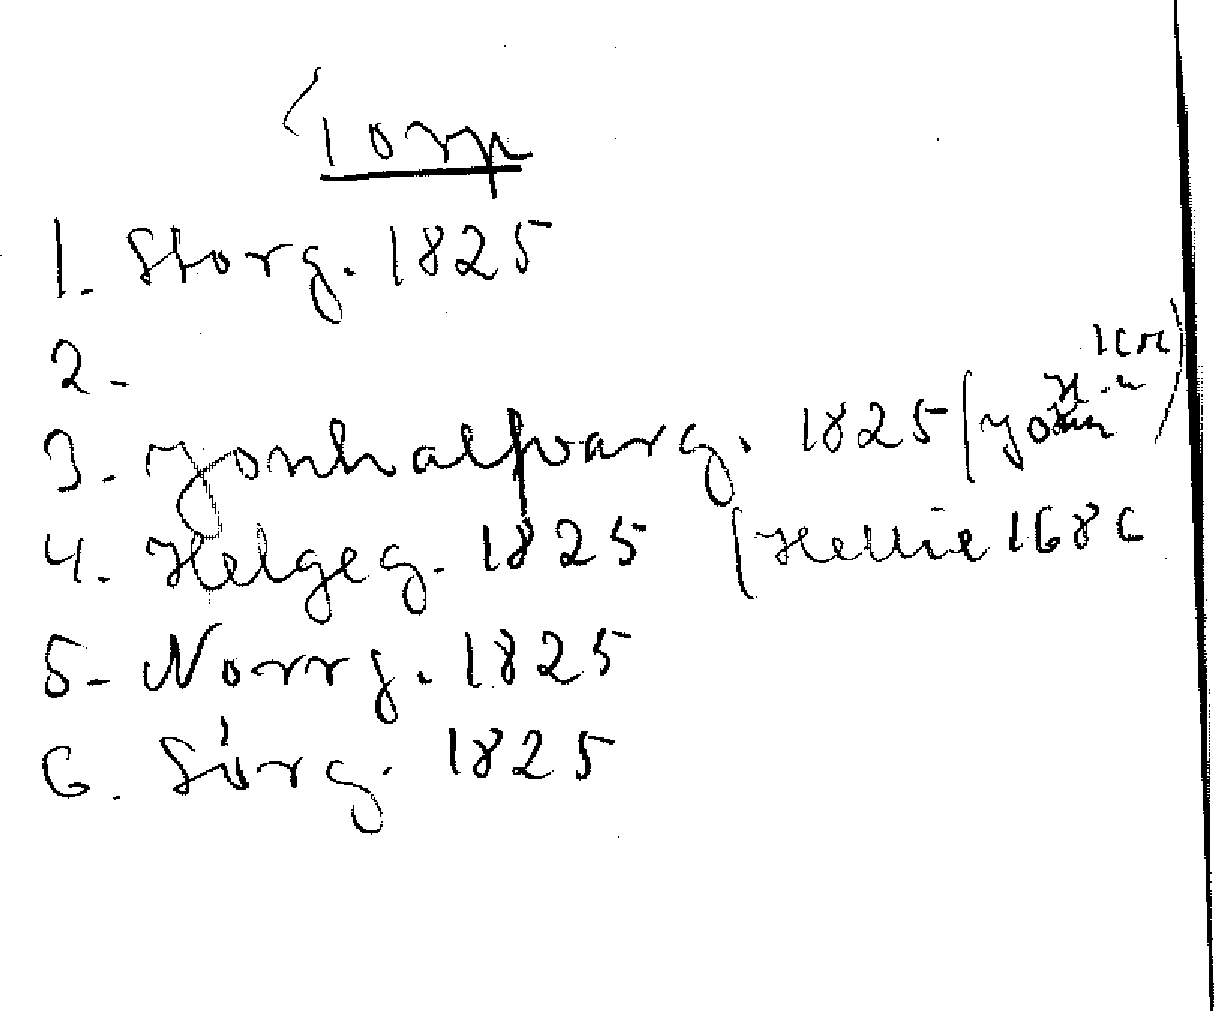 Torp
1. Storg. 1825
2.
3. Jonhalfvarg. 1825
4. Helgeg. 1825 (Hellie 1686
5. Norrg. 1825
6. Sörg. 1825